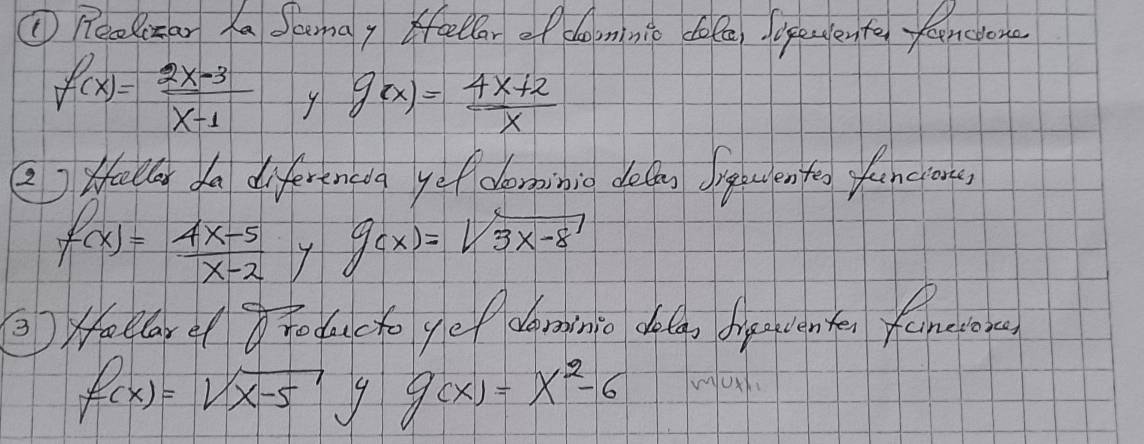 ① Realizar La Suma y Hallar el dominio delas Siguientes funciones
f(x) = \frac{2x-3}{x-1} y g(x) = \frac{4x+2}{x}
② Hallar La diferencia y el dominio delas Siguientes funciones
f(x) = \frac{4x-5}{x-2} y g(x) = \sqrt{3x-8}
③ Hallar el Producto y el dominio delas Siguientes funciones
f(x) = \sqrt{x-5} y g(x) = x^2-6